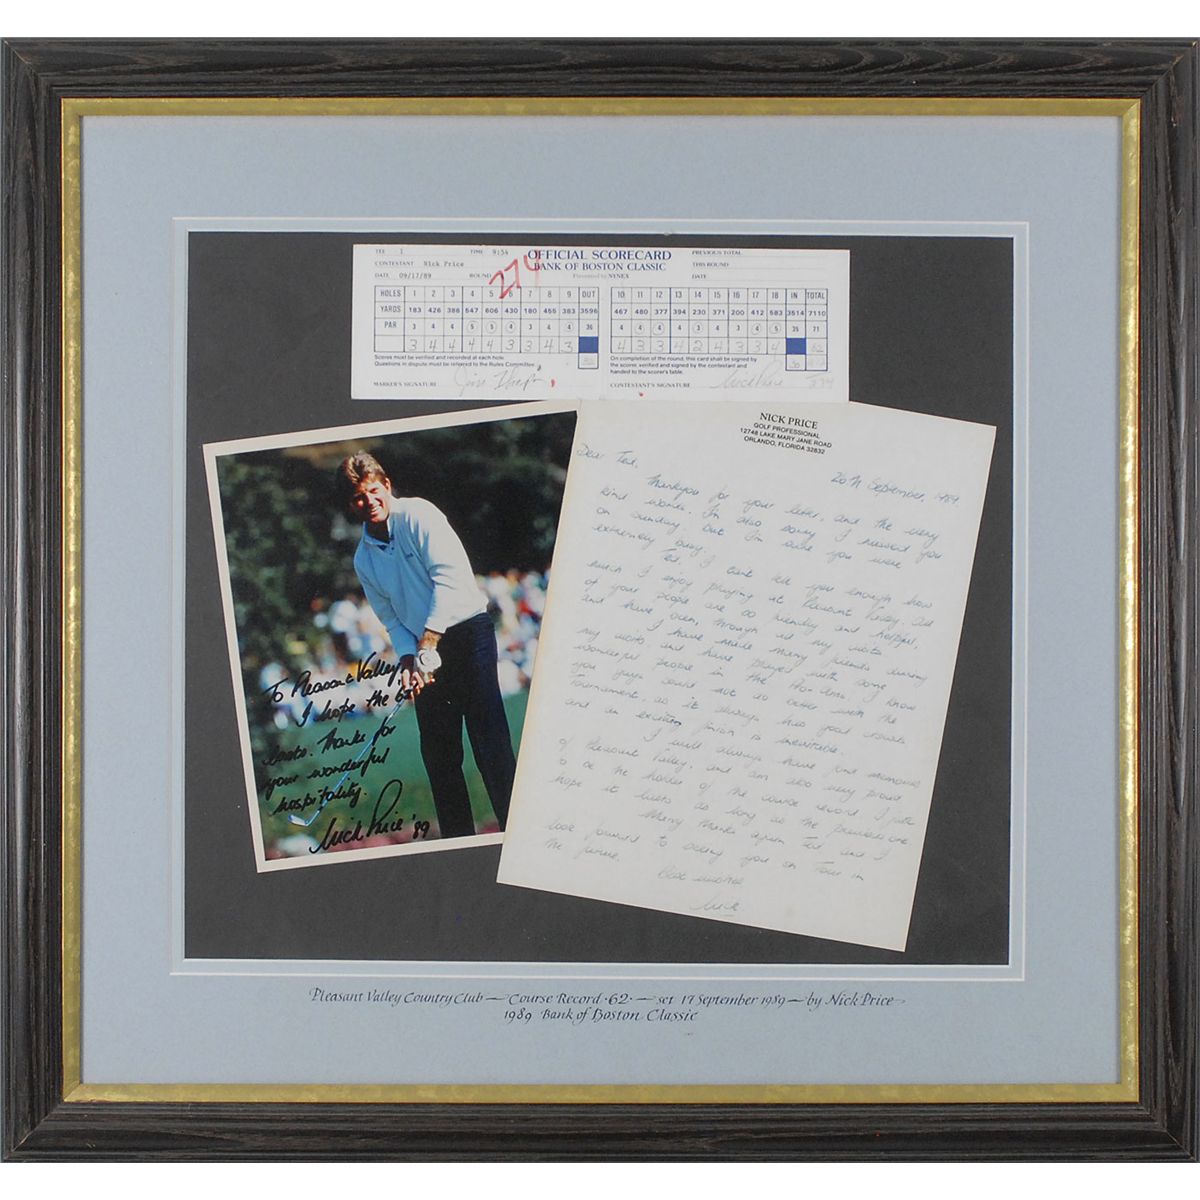 TEE 1 TIME 9:54 OFFICIAL SCORECARD PREVIOUS TOTAL
CONTESTANT Nick Price BANK OF BOSTON CLASSIC THIS ROUND
DATE 09/17/89 ROUND Presented by NYNEX DATE
274
HOLES 1 2 3 4 5 6 7 8 9 OUT 10 11 12 13 14 15 16 17 18 IN TOTAL
YARDS 183 426 386 547 606 430 180 455 383 3596 467 480 377 394 230 371 200 412 583 3514 7110
PAR 3 4 4 5 5 4 3 4 4 36 4 4 4 4 3 4 3 4 5 35 71
3 4 4 4 4 3 3 4 3 4 3 3 4 2 4 3 3 4 62
Scores must be verified and recorded at each hole. On completion of the round, this card shall be signed by
Questions in dispute must be referred to the Rules Committee. the scorer, verified and signed by the contestant and
handed to the scorer's table.
MARKER'S SIGNATURE CONTESTANT'S SIGNATURE Nick Price 274
NICK PRICE
GOLF PROFESSIONAL
12748 LAKE MARY JANE ROAD
ORLANDO, FLORIDA 32832
20th September, 1989.
Dear Ted,
Thankyou for your letter, and the very
kind words. I'm also sorry I missed you
on Sunday, but I'm sure you were
extremely busy.
Ted, I can't tell you enough how
much I enjoy playing at Pleasant Valley. All
of your people are so friendly and helpful,
and have been, through all my visits
I have made many friends during
my visits, and have played with some
wonderful people in the Pro-Ams. I know
you guys could not do better with the
Tournament, as it always has good crowds
and an exciting finish is inevitable.
I will always have fond memories
of Pleasant Valley, and am also very proud
to be the holder of the course record. I just
hope it lasts as long as the previous one
Many thanks again Ted, and I
look forward to seeing you on Tour in
the future.
Best wishes
Nick.
To Pleasant Valley,
I hope the "62"
lasts. Thanks for
your wonderful
hospitality.
Nick Price '89
Pleasant Valley Country Club — Course Record ·62· — set 17 September 1989 — by Nick Price
1989 Bank of Boston Classic